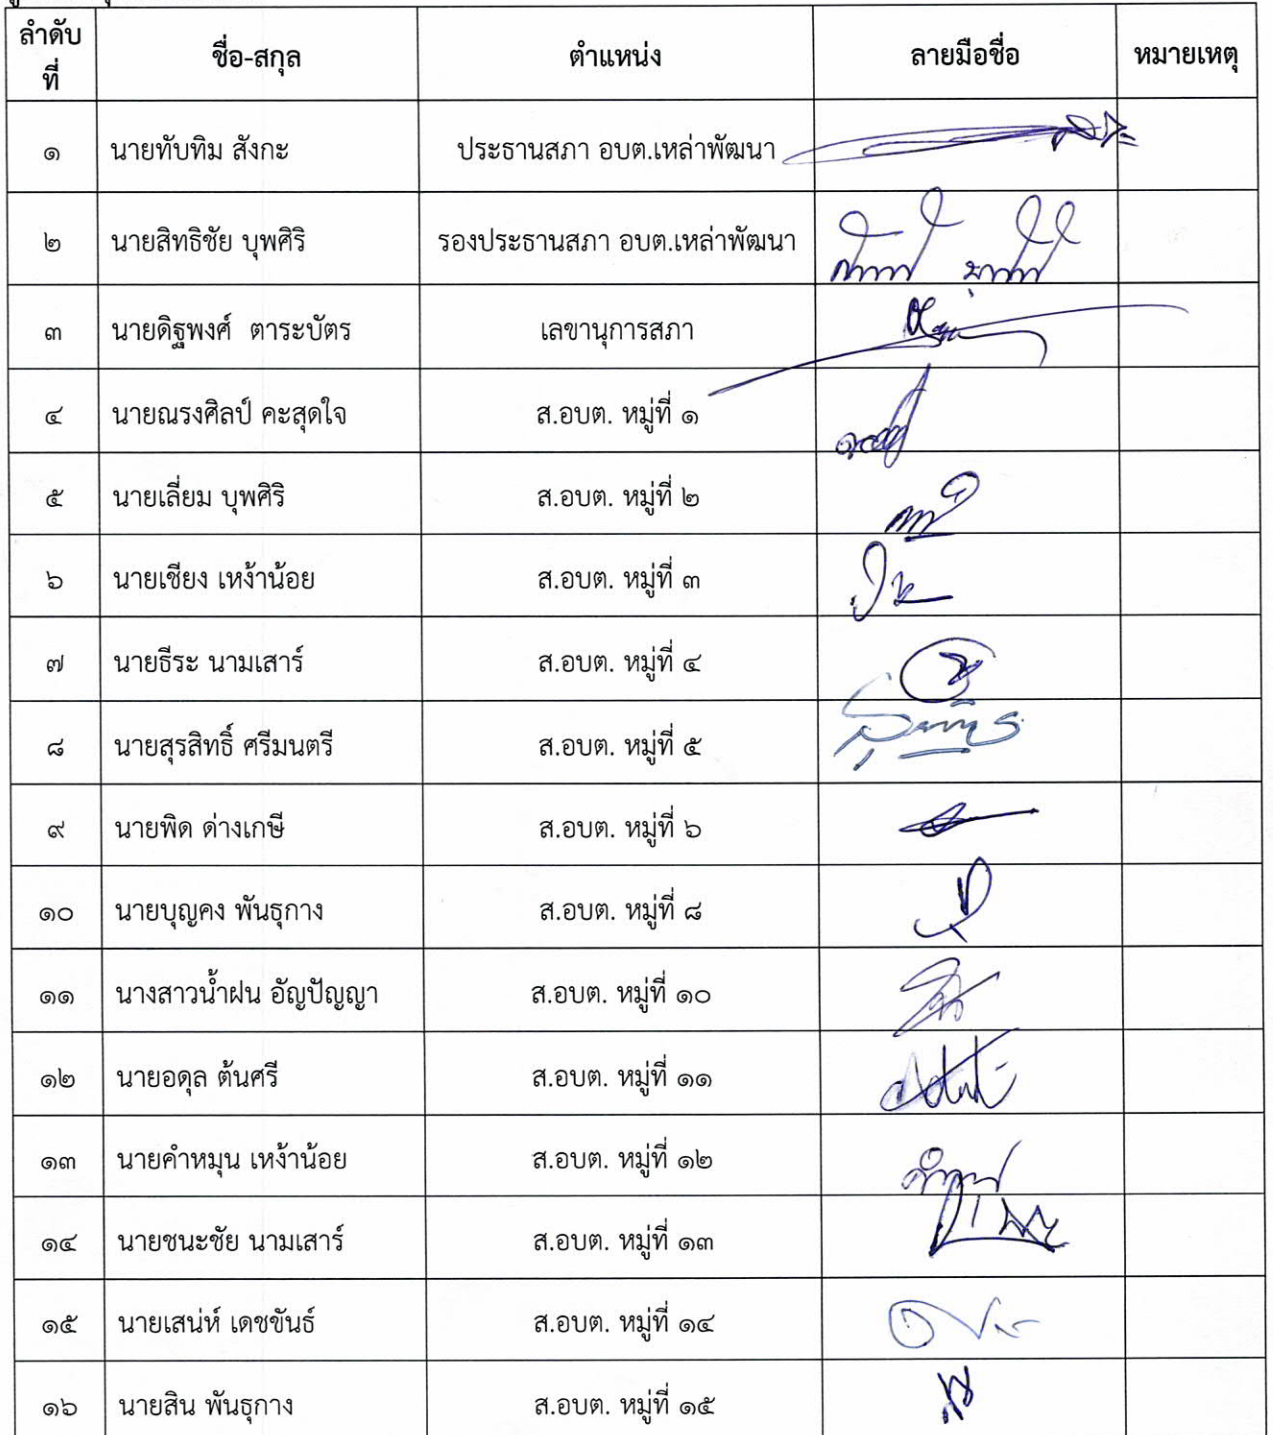 ลำดับที่ ชื่อ-สกุล ตำแหน่ง ลายมือชื่อ หมายเหตุ
๑ นายทับทิม สังกะ ประธานสภา อบต.เหล่าพัฒนา
๒ นายสิทธิชัย บุพศิริ รองประธานสภา อบต.เหล่าพัฒนา
๓ นายดิฐพงศ์ ตาระบัตร เลขานุการสภา
๔ นายณรงศิลป์ คะสุดใจ ส.อบต. หมู่ที่ ๑
๕ นายเลี่ยม บุพศิริ ส.อบต. หมู่ที่ ๒
๖ นายเชียง เหง้าน้อย ส.อบต. หมู่ที่ ๓
๗ นายธีระ นามเสาร์ ส.อบต. หมู่ที่ ๔
๘ นายสุรสิทธิ์ ศรีมนตรี ส.อบต. หมู่ที่ ๕
๙ นายพิด ด่างเกษี ส.อบต. หมู่ที่ ๖
๑๐ นายบุญคง พันธุกาง ส.อบต. หมู่ที่ ๘
๑๑ นางสาวน้ำฝน อัญปัญญา ส.อบต. หมู่ที่ ๑๐
๑๒ นายอดุล ต้นศรี ส.อบต. หมู่ที่ ๑๑
๑๓ นายคำหมุน เหง้าน้อย ส.อบต. หมู่ที่ ๑๒
๑๔ นายชนะชัย นามเสาร์ ส.อบต. หมู่ที่ ๑๓
๑๕ นายเสน่ห์ เดชขันธ์ ส.อบต. หมู่ที่ ๑๔
๑๖ นายสิน พันธุกาง ส.อบต. หมู่ที่ ๑๕